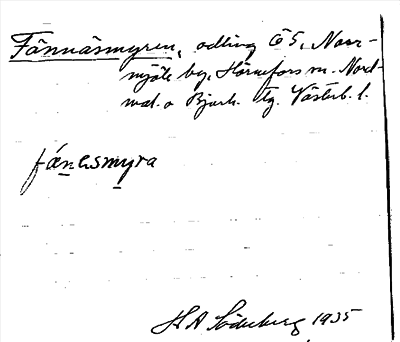 Fännäsmyren, odling Ö 5, Norr-
mjöle by, Hörnefors sn. Nord-
mal. o Bjurh. tg. Västerb. l.
fǽnesmyra
H A Söderberg 1935